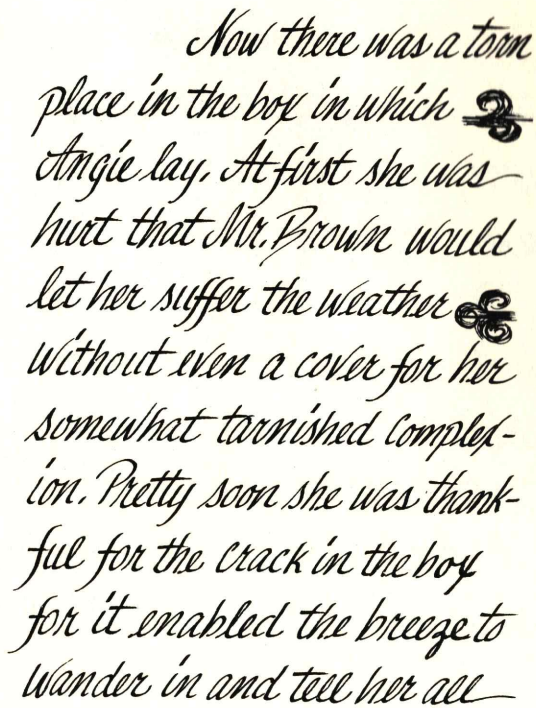 Now there was a torn
place in the box in which
Angie lay. At first she was
hurt that Mr. Brown would
let her suffer the weather
without even a cover for her
somewhat tarnished complex-
ion. Pretty soon she was thank-
ful for the crack in the box
for it enabled the breeze to
wander in and tell her all